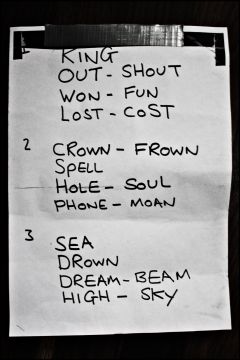 KING
OUT - SHOUT
WON - FUN
LOST - COST
2 CROWN - FROWN
SPELL
HOLE - SOUL
PHONE - MOAN
3 SEA
DROWN
DREAM - BEAM
HIGH - SKY